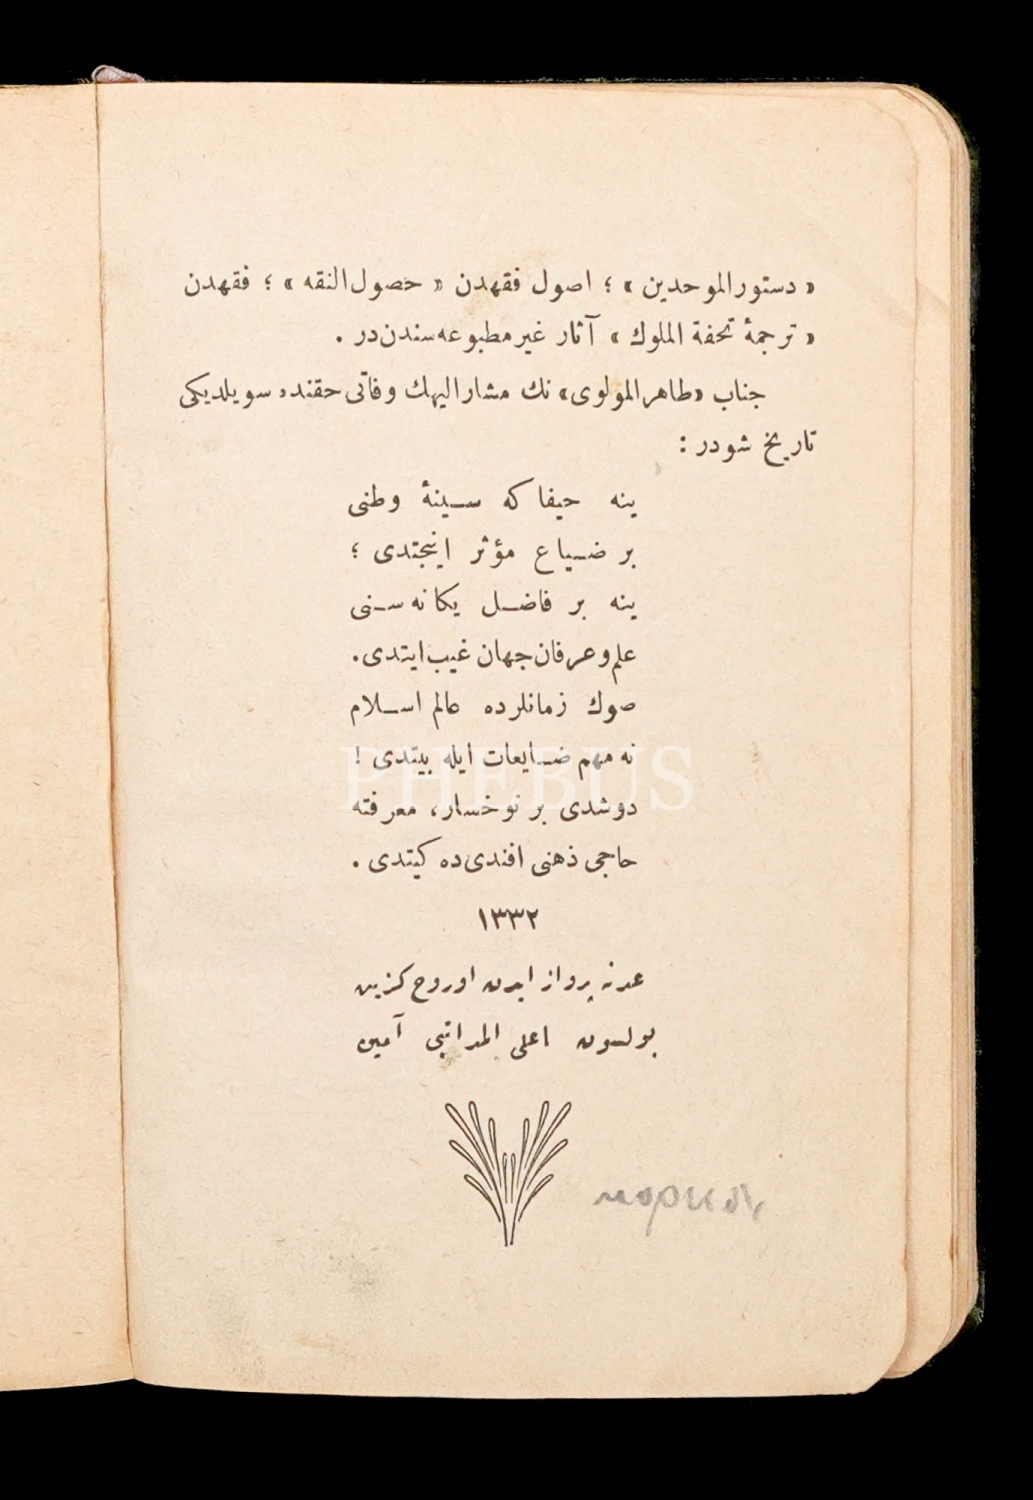 « دستورالموحدین » ؛ اصول فقهدن « حصول النقه » ؛ فقهدن
« ترجمهٔ تحفة الملوك » آثار غیر مطبوعه‌سندن‌در .
جناب «طاهرالمولوی» نك مشارالیهك وفاتی حقنده سویلدیکی
تاریخ شودر :
ینه حیفا که سینهٔ وطنی
بر ضیاع مؤثر اینجتدی ؛
ینه بر فاضل یکانه‌سنی
علم و عرفان جهان غیب ایتدی.
صوك زمانلرده عالم اسلام
نه مهم ضایعات ایله بیتدی !
دوشدی بر نوخسار، معرفته
حاجی ذهنی افندی‌ده کیتدی .
۱۳۳۲
عدنه پرواز ایدن اوروح کزین
بولسون اعلی المراتبی آمین
PHEBUS